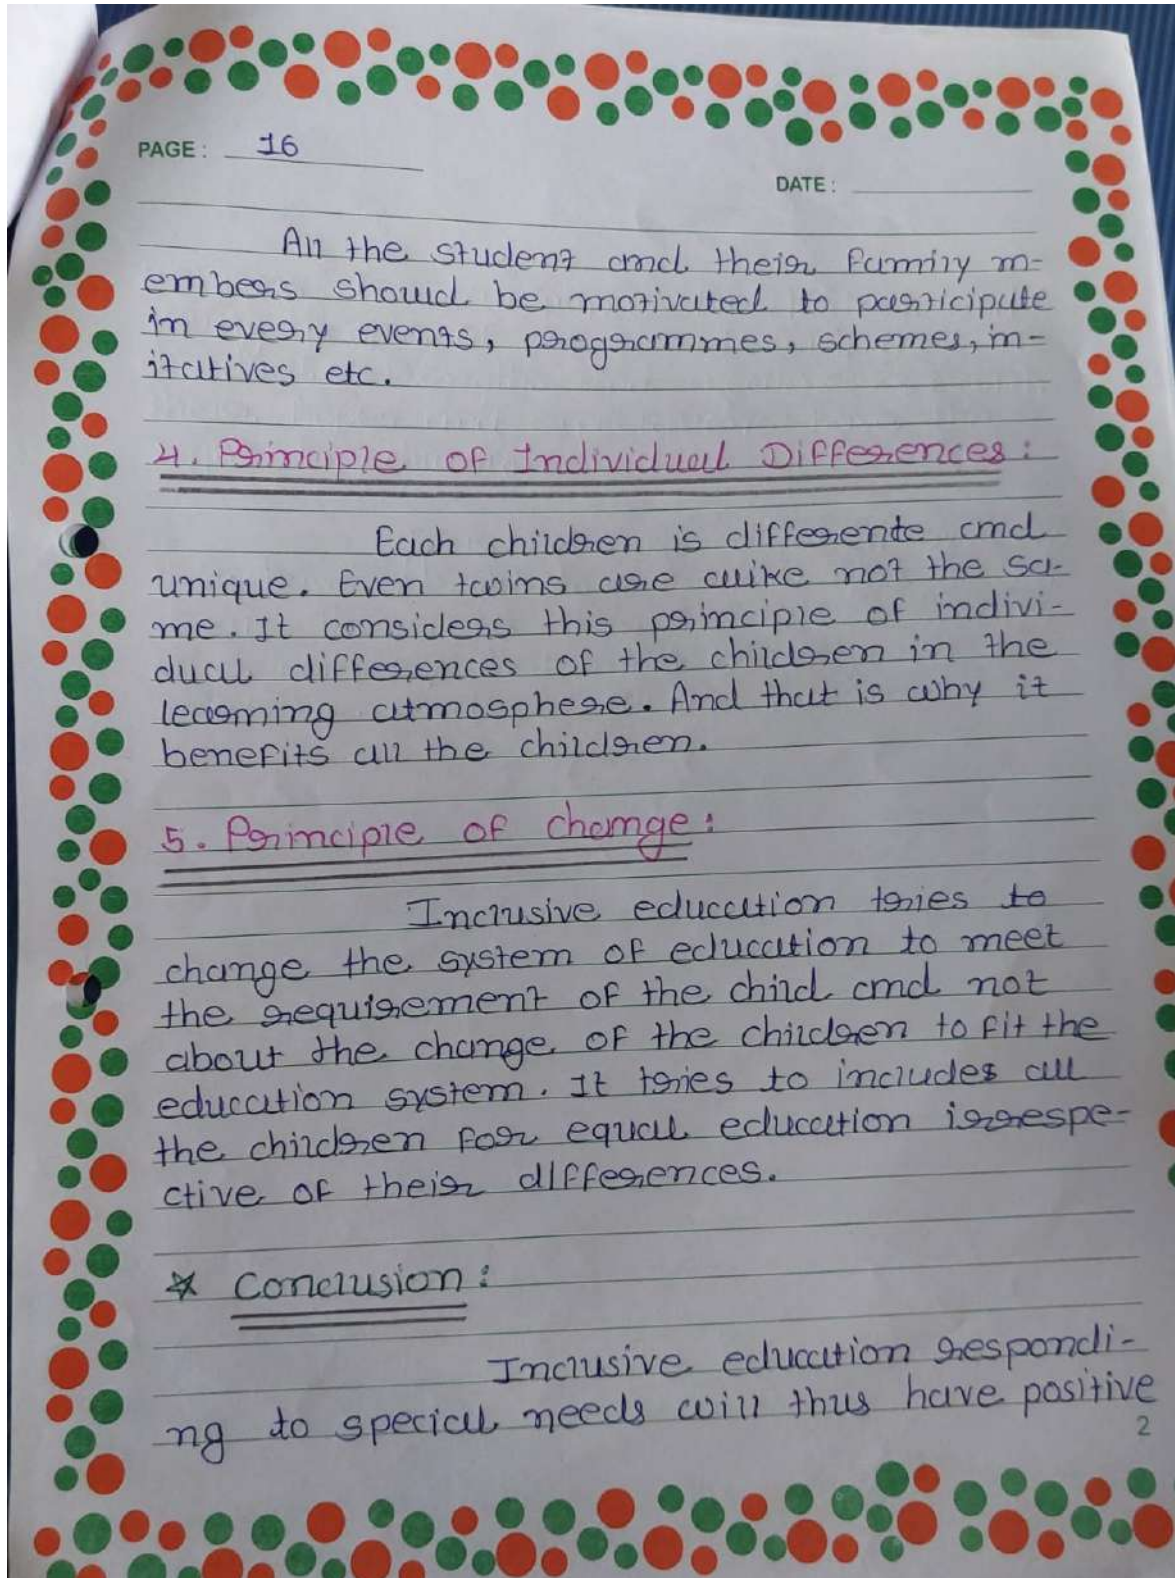 PAGE: 16
DATE:
All the student and their family m-
embers should be motivated to participate
in every events, programmes, schemes, in-
itatives etc.
4. Principle of Individual Differences:
Each children is differente and
unique. Even twins are alike not the sa-
me. It considers this principle of indivi-
dual differences of the children in the
learning atmosphere. And that is why it
benefits all the children.
5. Principle of change:
Inclusive education tries to
change the system of education to meet
the requirement of the child and not
about the change of the children to fit the
education system. It tries to includes all
the children for equal education irrespe-
ctive of their differences.
* Conclusion:
Inclusive education respondi-
ng to special needs will thus have positive
2